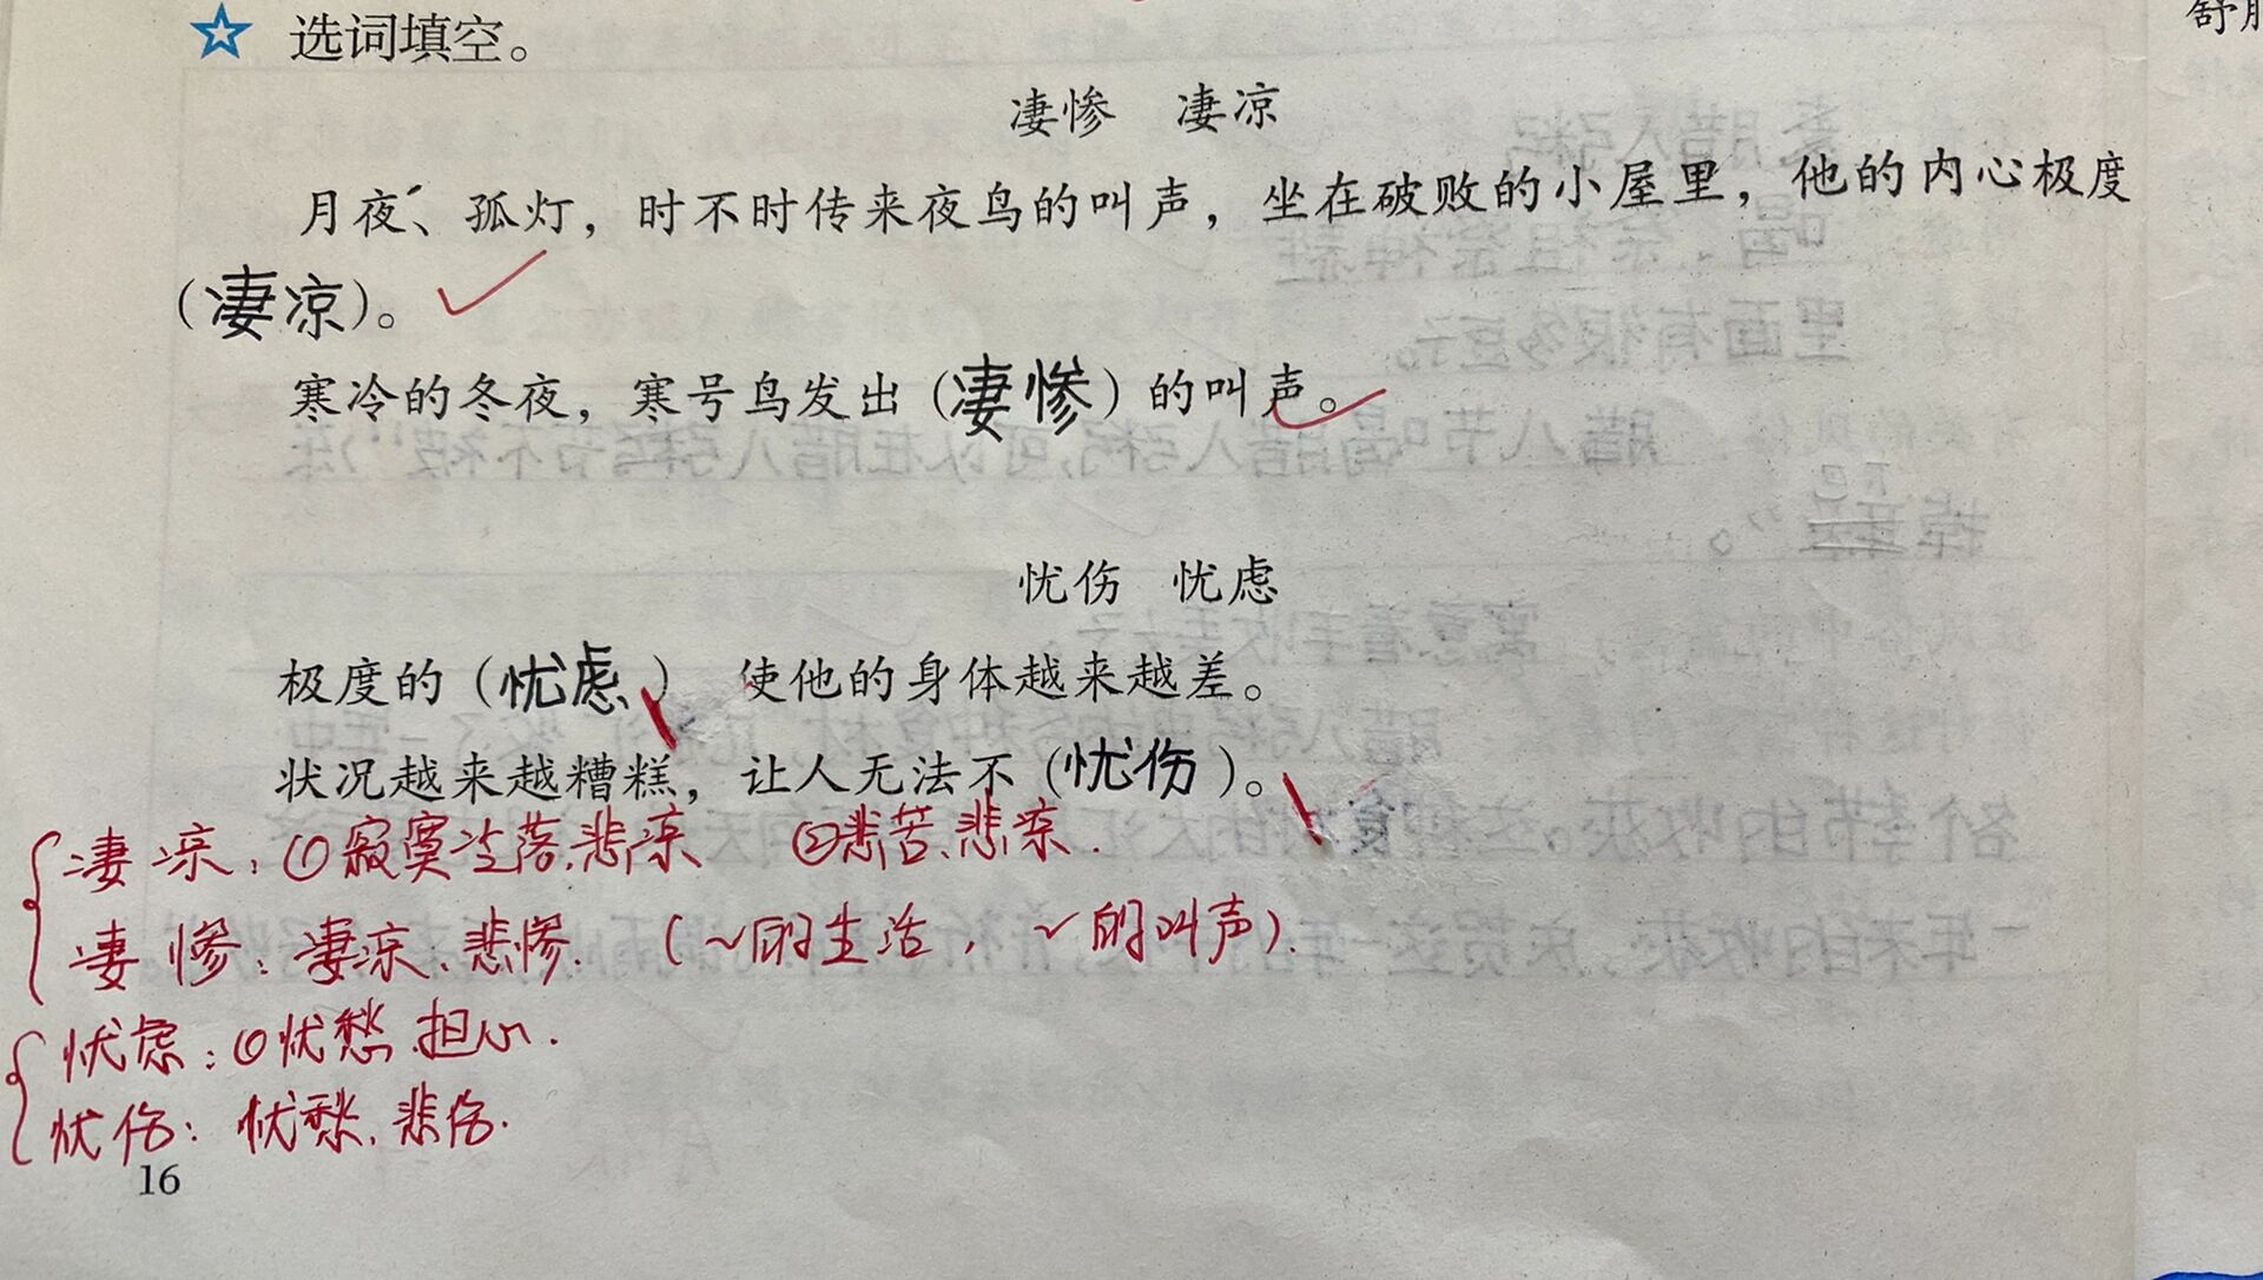 选词填空。
凄惨 凄凉
月夜、孤灯，时不时传来夜鸟的叫声，坐在破败的小屋里，他的内心极度
（凄凉）。
寒冷的冬夜，寒号鸟发出（凄惨）的叫声。
忧伤 忧虑
极度的（忧虑） 使他的身体越来越差。
状况越来越糟糕，让人无法不（忧伤）。
凄凉：①寂寞冷落、悲凉 ②悲苦、悲凉.
凄惨：凄凉、悲惨.（～的生活，～的叫声）.
忧虑：①忧愁、担心.
忧伤：忧愁、悲伤.
16